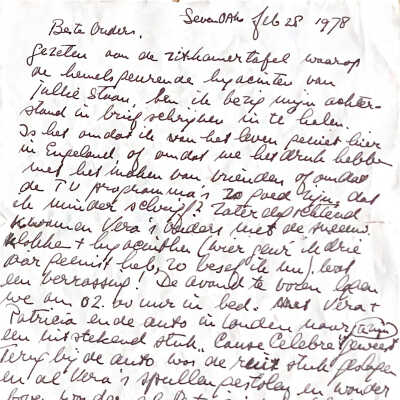 SevenOaks feb 28 1978
Beste Ouders.
Gezeten aan de zitkamertafel waarop
de hemelsgeurende hyacinten van
Jullie staan, ben ik bezig mijn achter-
stand in brief schrijven in te halen.
Is het omdat ik van het leven geniet hier
in Engeland, of omdat we het druk hebben
met het maken van vrienden of omdat
de TV programma's zo goed zijn, dat
ik minder schrijf? Zaterdagochtend
kwamen Vera's ouders met de sneeuw-
klokke + hyacinthen (wier geur ik drie
jaar gemist heb, zo besef ik nu). Wat
een verrassing! De avond te voren lagen
we om 02.00 uur in bed. Met Vera +
Patricia en de auto in Londen naar
een uitstekend stuk "Cause Celebre" geweest
Terug bij de auto was de ruit stuk geslagen
en al Vera's spullen gestolen en zonder